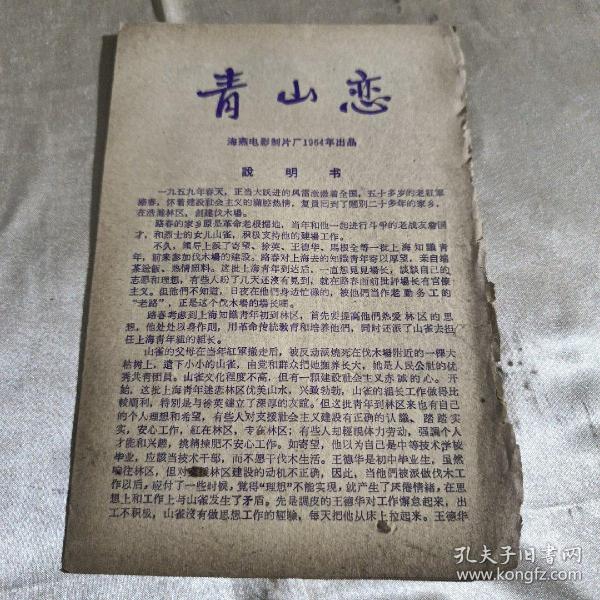 青山恋
海燕电影制片厂1964年出品
說明书
一九五九年春天，正当大跃进的风雷激蕩着全国，五十多岁的老紅軍
路春，怀着建設社会主义的滿腔热情，复員回到了闊別二十多年的家乡，
在浩瀚林区，創建伐木場。
路春的家乡原是革命老根据地，当年和他一起进行斗爭的老战友詹国
才，和烈士的女儿山雀，积极支持他的建場工作。
不久，組織上派了寄望、徐英、王德华、馬根全等一批上海知識青
年，前来参加伐木場的建設。路春对上海去的知識青年寄以厚望，亲自端
茶送飯，热情照料。这批上海青年到达后，一直想見見場长，談談自己的
志愿和理想，有些人盼了几天还沒有見到，就在路春面前批評場长有官僚
主义。但他們不知道，日夜在他們身边忙碌的，被他們当作老勤务工的
“老路”，正是这个伐木場的場长哩。
路春考慮到上海知識青年初到林区，首先要提高他們热爱林区的思
想，他处处以身作則，用革命传統教育和培养他們，同时还派了山雀去担
任上海青年組的組长。
山雀的父母在当年紅軍撤走后，被反动派燒死在伐木場附近的一棵大
枯树上，遺下小小的山雀，由党和群众把她撫养长大，她是人民公社的优
秀共青团員。山雀文化程度不高，但有一顆建設社会主义赤誠的心。开
始，这批上海青年迷恋林区优美山水，兴致勃勃，山雀的組长工作做得比
較順利，特別是与徐英建立了深厚的友誼。但这批青年到林区来也有自己
的个人理想和希望，有些人对支援社会主义建設有正确的认識、踏踏实
实，安心工作，紅在林区，专在林区；有些人却輕視体力劳动，强調个人
才能和兴趣，挑精揀肥不安心工作。如寄望，他以为自己是中等技术学校
毕业，应該当技术干部，而不愿干伐木生活。王德华是初中毕业生，虽然
嚮往林区，但对支援林区建設的动机不正确，因此，当他們被派做伐木工
作以后，应付了一些时候，覚得“理想”不能实現，就产生了厌倦情緒，在思
想上和工作上与山雀发生了矛盾。先是調皮的王德华对工作懈怠起来，出
工不积极，山雀沒有做思想工作的經驗，每天把他从床上拉起来。王德华
孔夫子旧书网
www.kongfz.com